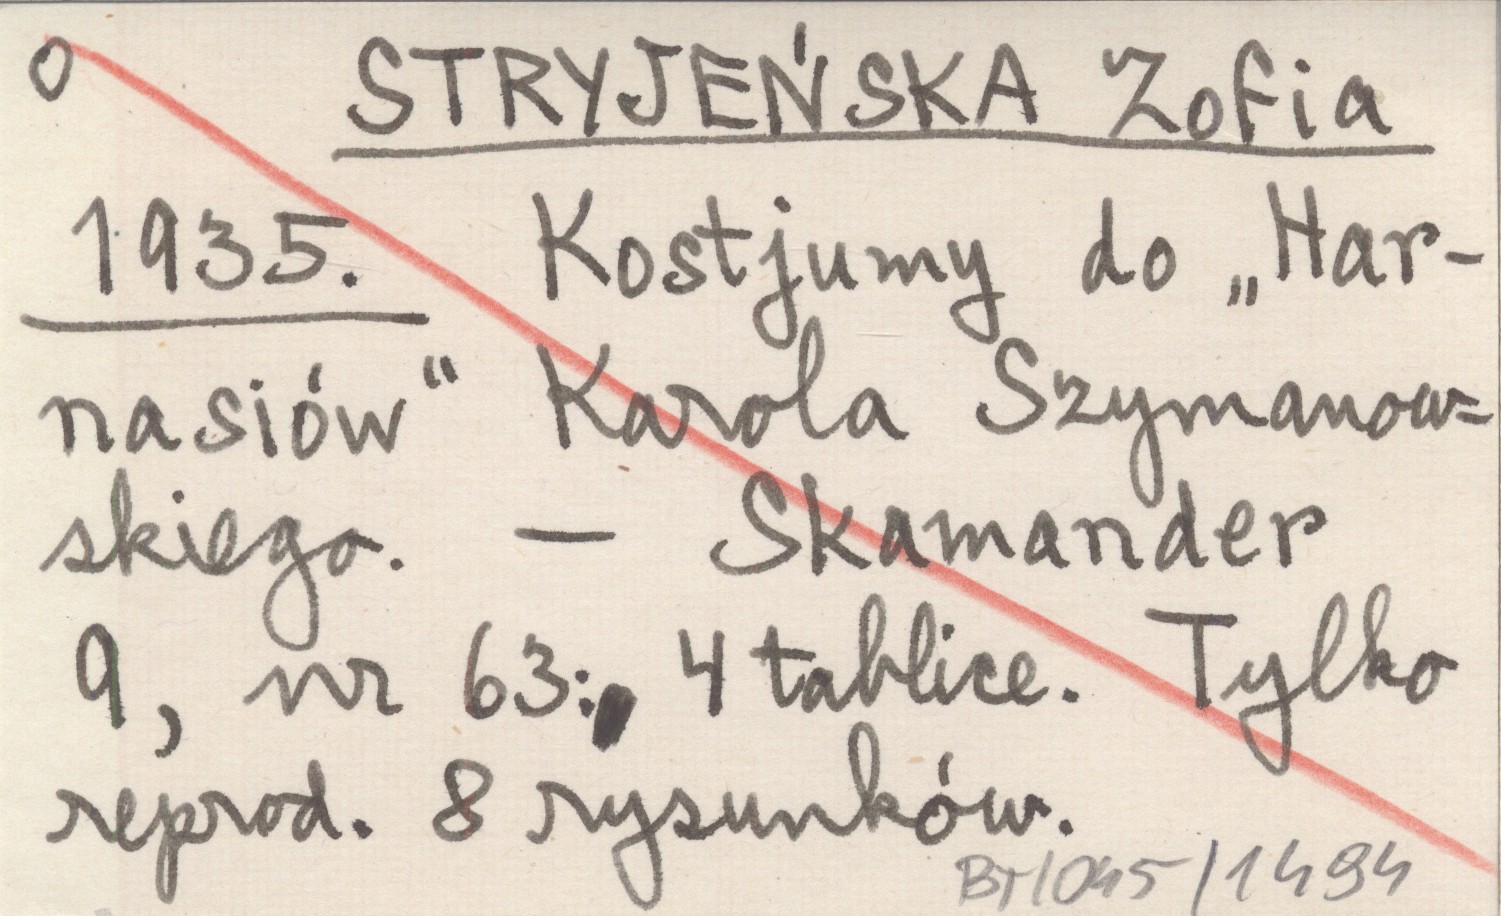 0 STRYJEŃSKA Zofia
1935. Kostjumy do „Har-
nasiów“ Karola Szymanow=
skiego. — Skamander
9, nr 63: 4 tablice. Tylko
reprod. 8 rysunków.
BT/045/1494